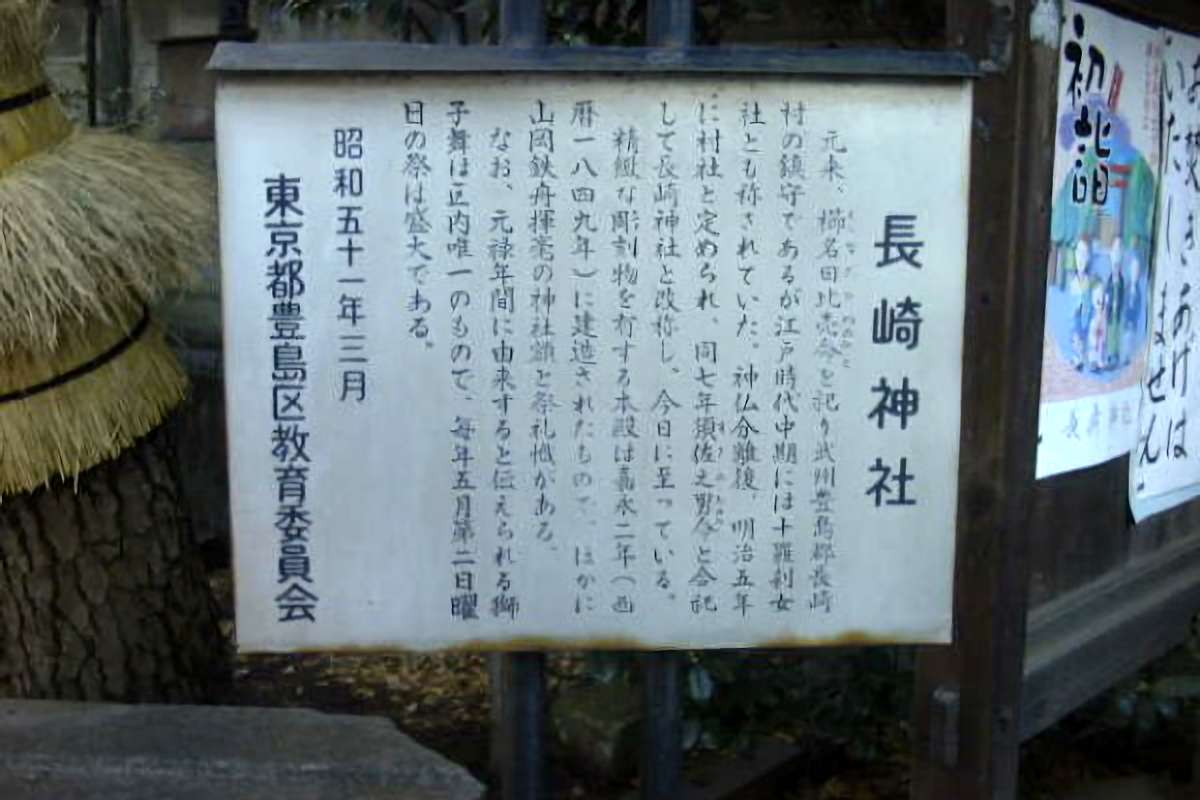 長崎神社
元来、櫛名田比売命を祀り武州豊島郡長崎
村の鎮守であるが江戸時代中期には十羅刹女
社とも称されていた。神仏分離後、明治五年
に村社と定められ、同七年須佐之男命と合祀
して長崎神社と改称し、今日に至っている。
精緻な彫刻物を有する本殿は嘉永二年（西
暦一八四九年）に建造されたもので、ほかに
山岡鉄舟揮毫の神社額と祭礼幟がある。
なお、元禄年間に由来すると伝えられる獅
子舞は区内唯一のもので、毎年五月第二日曜
日の祭は盛大である。
昭和五十一年三月
東京都豊島区教育委員会
初詣
長崎神社
いたしません